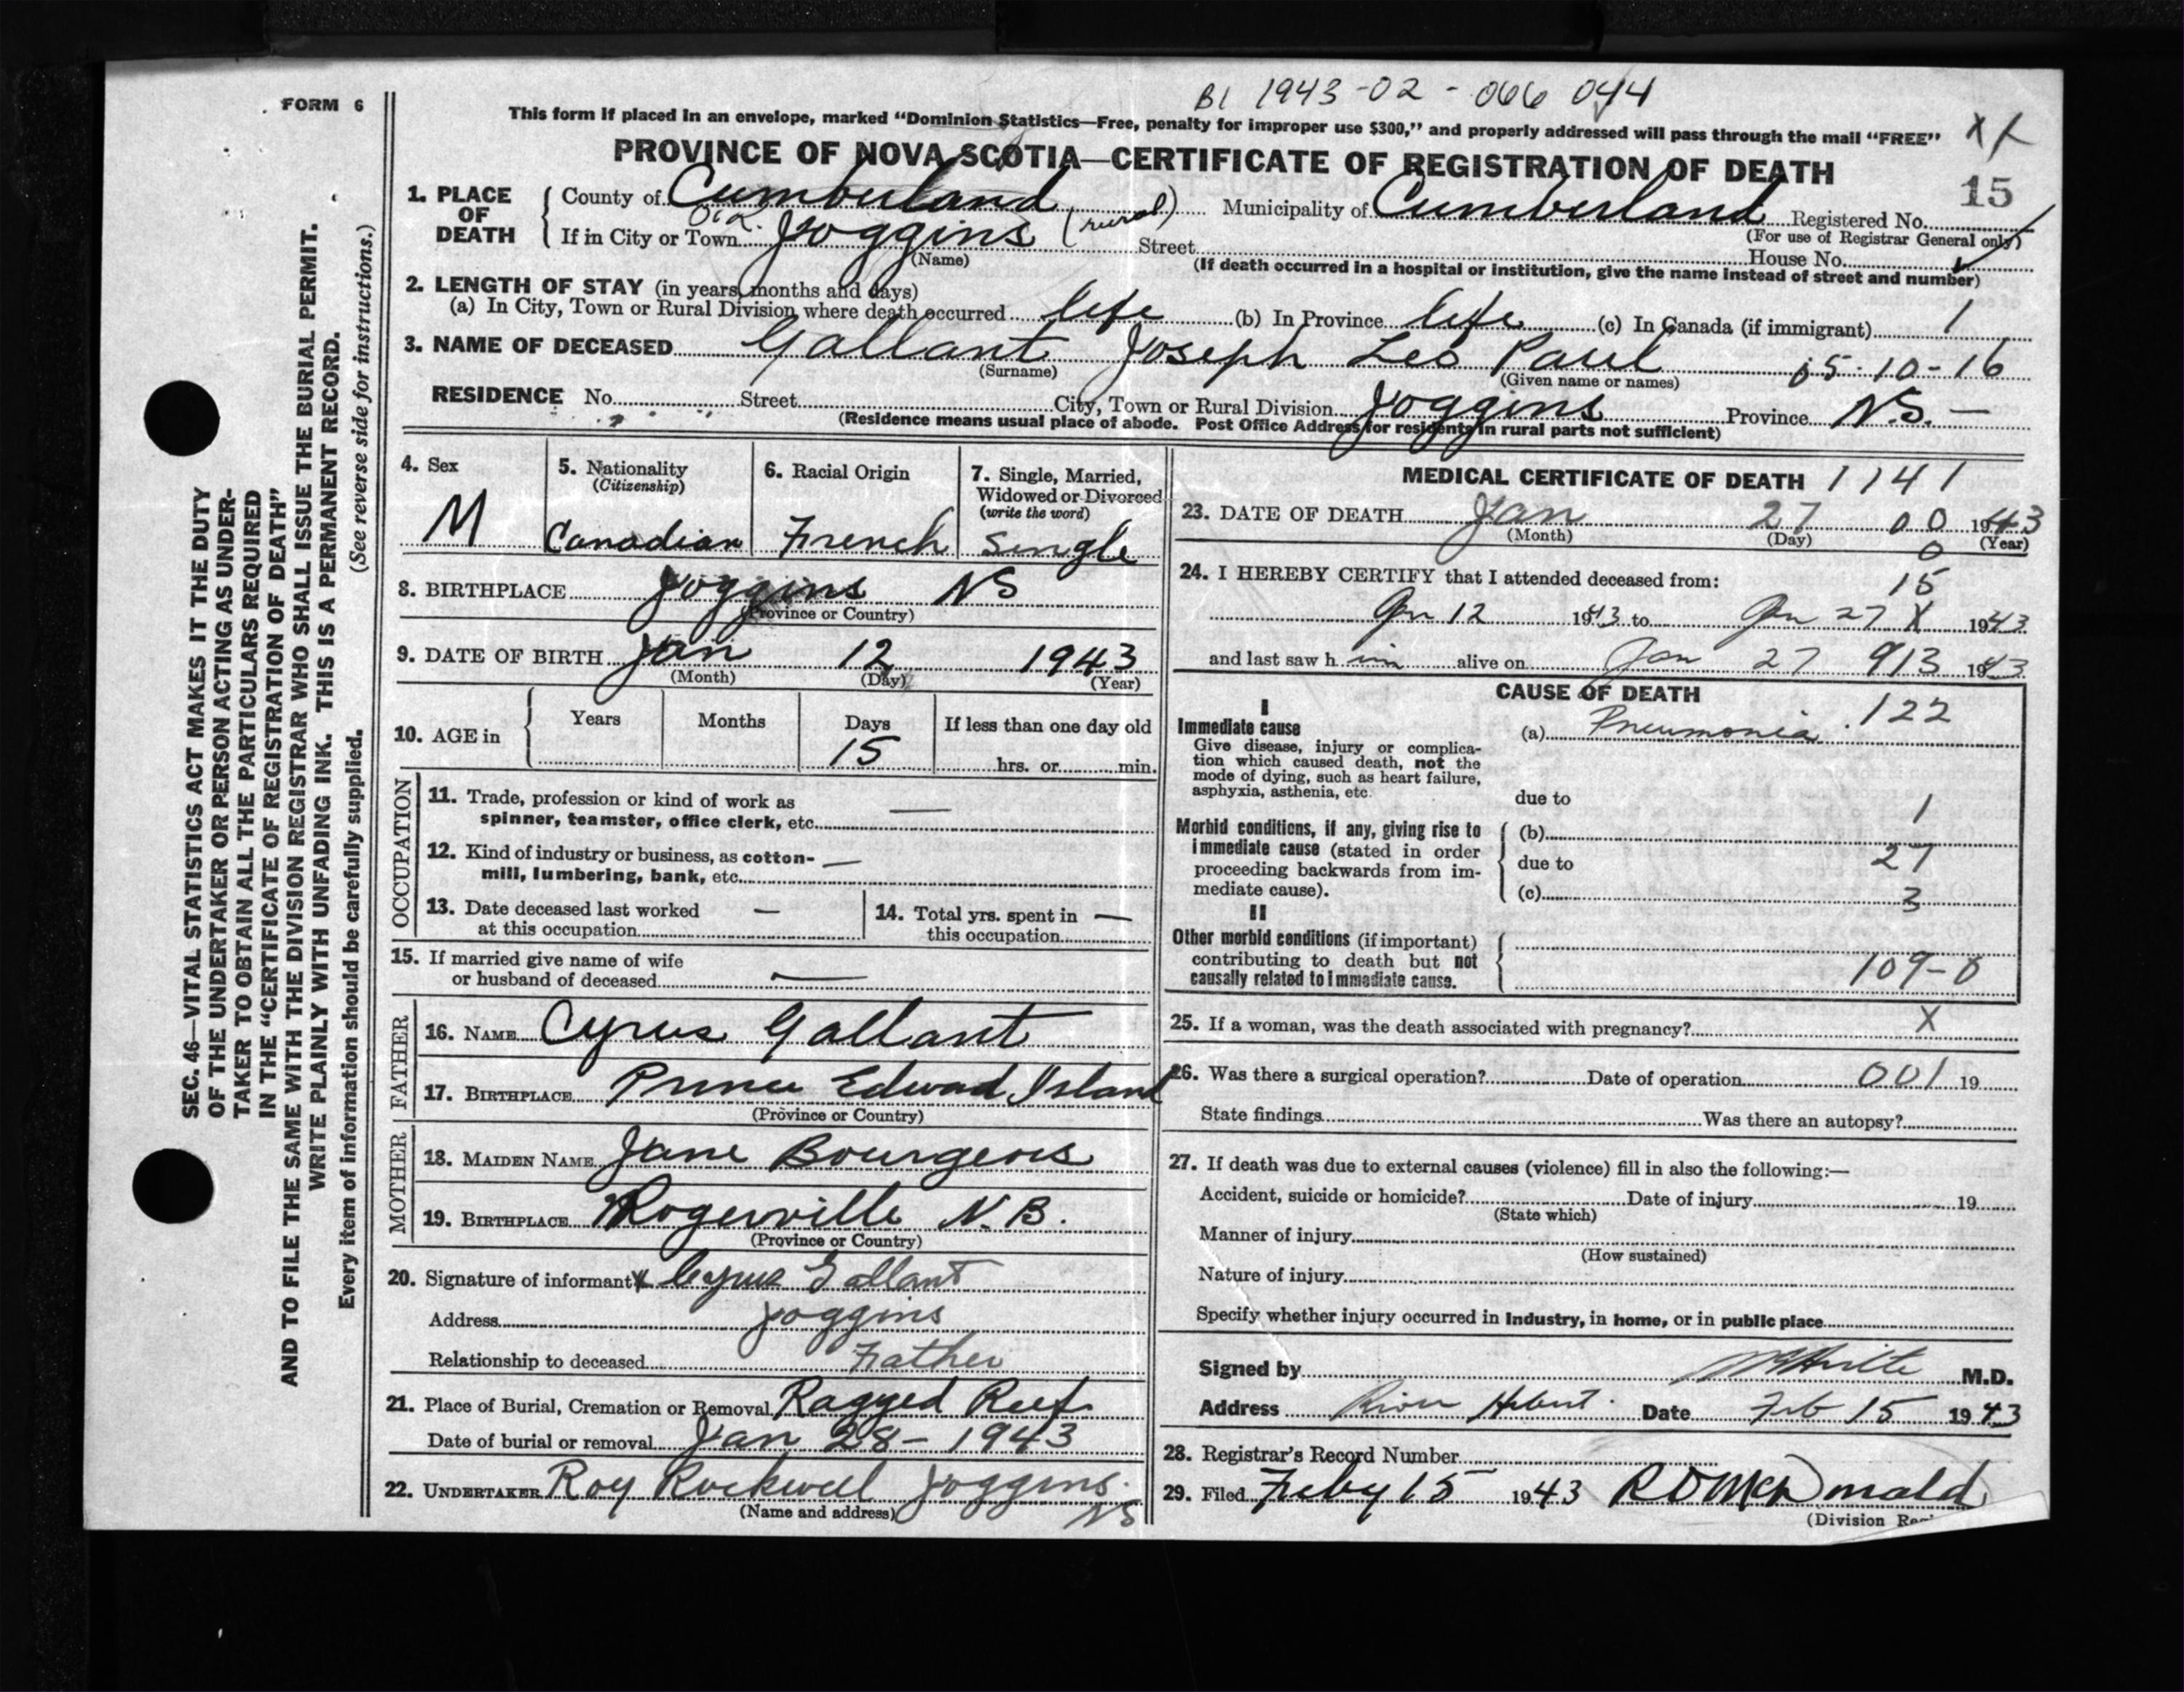 FORM 6
B1 1943-02-066 044
This form if placed in an envelope, marked "Dominion Statistics—Free, penalty for improper use $300," and properly addressed will pass through the mail "FREE"
PROVINCE OF NOVA SCOTIA—CERTIFICATE OF REGISTRATION OF DEATH
15
1. PLACE OF DEATH
County of Cumberland Municipality of Cumberland Registered No.
(For use of Registrar General only)
If in City or Town Joggins (rural) Street House No.
(Name) (If death occurred in a hospital or institution, give the name instead of street and number)
2. LENGTH OF STAY (in years, months and days)
(a) In City, Town or Rural Division where death occurred life (b) In Province life (c) In Canada (if immigrant) 1
3. NAME OF DECEASED Gallant Joseph Leo Paul 05-10-16
(Surname) (Given name or names)
RESIDENCE No. Street City, Town or Rural Division Joggins Province N.S. —
(Residence means usual place of abode. Post Office Address for residents in rural parts not sufficient)
4. Sex
M
5. Nationality
(Citizenship)
Canadian
6. Racial Origin
French
7. Single, Married,
Widowed or Divorced
(write the word)
Single
8. BIRTHPLACE Joggins NS
(Province or Country)
9. DATE OF BIRTH Jan 12 1943
(Month) (Day) (Year)
10. AGE in
Years Months Days If less than one day old
15 hrs. or min.
OCCUPATION
11. Trade, profession or kind of work as —
spinner, teamster, office clerk, etc.
12. Kind of industry or business, as cotton- —
mill, lumbering, bank, etc.
13. Date deceased last worked —
at this occupation
14. Total yrs. spent in —
this occupation
15. If married give name of wife
or husband of deceased —
FATHER
16. NAME Cyrus Gallant
17. BIRTHPLACE Prince Edward Island
(Province or Country)
MOTHER
18. MAIDEN NAME Jane Bourgeois
19. BIRTHPLACE Rogerville N.B.
(Province or Country)
20. Signature of informant x Cyrus Gallant
Address Joggins
Relationship to deceased Father
21. Place of Burial, Cremation or Removal Ragged Reef
Date of burial or removal Jan 28 - 1943
22. UNDERTAKER Roy Rockwell Joggins. NS
(Name and address)
MEDICAL CERTIFICATE OF DEATH 1141
23. DATE OF DEATH Jan 27 00 1943
(Month) (Day) (Year)
0
24. I HEREBY CERTIFY that I attended deceased from: 15
Jan 12 1943 to Jan 27 X 1943
and last saw him alive on Jan 27 913 1943
CAUSE OF DEATH
I
Immediate cause
Give disease, injury or complica-
tion which caused death, not the
mode of dying, such as heart failure,
asphyxia, asthenia, etc.
(a) Pneumonia 122
due to
1
Morbid conditions, if any, giving rise to
immediate cause (stated in order
proceeding backwards from im-
mediate cause).
(b)
due to 27
(c) 3
II
Other morbid conditions (if important)
contributing to death but not
causally related to immediate cause.
109-0
25. If a woman, was the death associated with pregnancy? X
26. Was there a surgical operation? Date of operation 001 19
State findings Was there an autopsy?
27. If death was due to external causes (violence) fill in also the following:—
Accident, suicide or homicide? Date of injury 19
(State which)
Manner of injury
(How sustained)
Nature of injury
Specify whether injury occurred in Industry, in home, or in public place
Signed by M.D.
Address River Hebert. Date Feb 15 1943
28. Registrar's Record Number
29. Filed Feby 15 1943 R D McDonald
(Division
SEC. 46—VITAL STATISTICS ACT MAKES IT THE DUTY
OF THE UNDERTAKER OR PERSON ACTING AS UNDER-
TAKER TO OBTAIN ALL THE PARTICULARS REQUIRED
IN THE "CERTIFICATE OF REGISTRATION OF DEATH"
AND TO FILE THE SAME WITH THE DIVISION REGISTRAR WHO SHALL ISSUE THE BURIAL PERMIT.
WRITE PLAINLY WITH UNFADING INK. THIS IS A PERMANENT RECORD.
Every item of information should be carefully supplied. (See reverse side for instructions.)